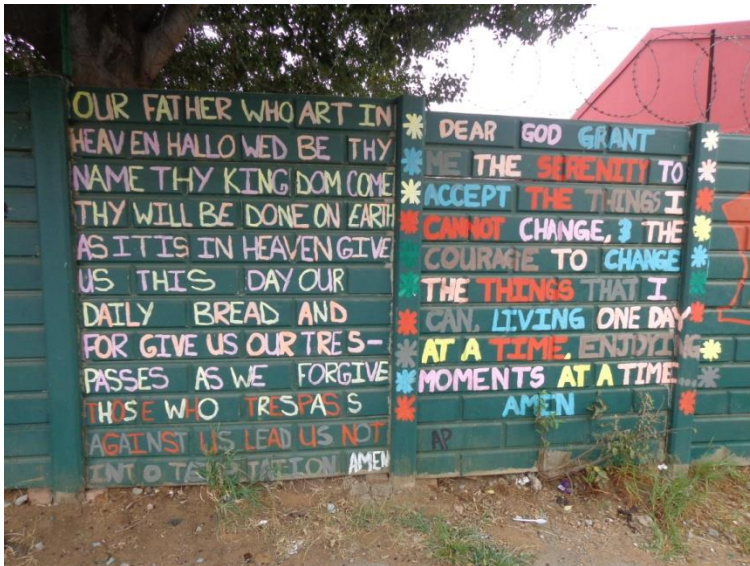 OUR FATHER WHO ART IN
HEAVEN HALLOWED BE THY
NAME THY KINGDOM COME
THY WILL BE DONE ON EARTH
AS IT IS IN HEAVEN GIVE
US THIS DAY OUR
DAILY BREAD AND
FOR GIVE US OUR TRES-
PASSES AS WE FORGIVE
THOSE WHO TRESPASS
AGAINST US LEAD US NOT
INTO TEMPTATION AMEN
DEAR GOD GRANT
ME THE SERENITY TO
ACCEPT THE THINGS I
CANNOT CHANGE, & THE
COURAGE TO CHANGE
THE THINGS THAT I
CAN, LIVING ONE DAY
AT A TIME, ENJOYING
MOMENTS AT A TIME...
AMEN
AP